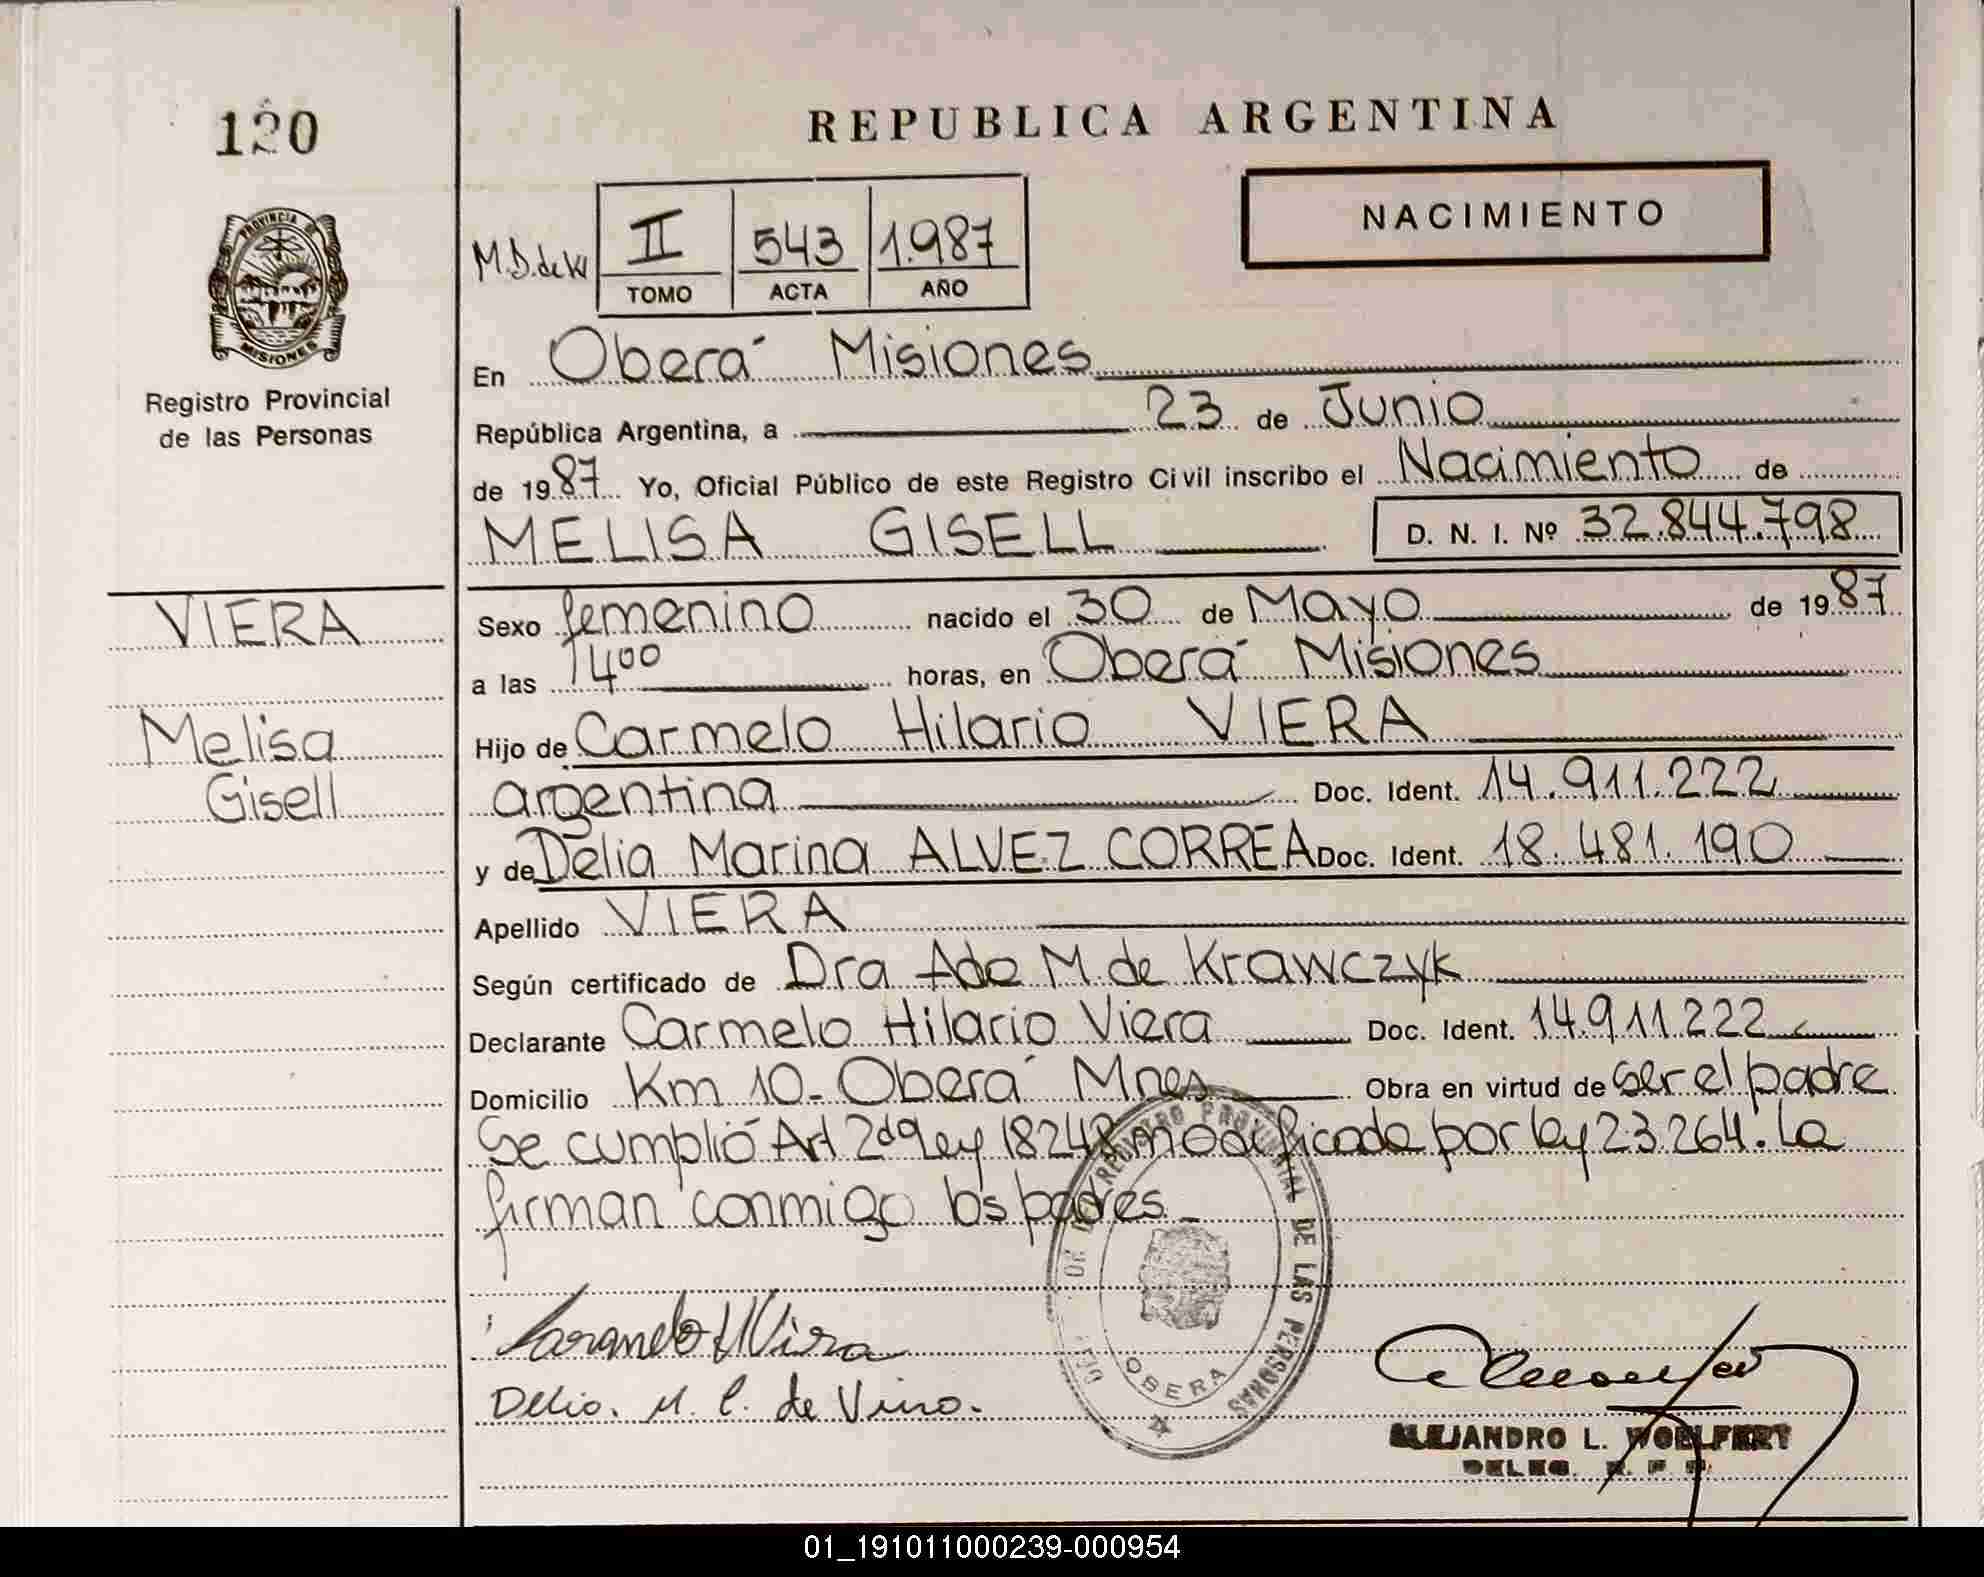 120
REPUBLICA ARGENTINA
NACIMIENTO
M.D. de W
II 543 1.987
TOMO ACTA AÑO
PROVINCIA DE MISIONES
Registro Provincial
de las Personas
En Oberá Misiones
República Argentina, a 23 de Junio
de 1987 Yo, Oficial Público de este Registro Civil inscribo el Nacimiento de
MELISA GISELL D. N. I. Nº 32.844.798
VIERA
Melisa
Gisell
Sexo femenino nacido el 30 de Mayo de 1987
a las 14⁰⁰ horas, en Oberá Misiones
Hijo de Carmelo Hilario VIERA
argentina Doc. Ident. 14.911.222
y de Delia Marina ALVEZ CORREA Doc. Ident. 18.481.190
Apellido VIERA
Según certificado de Dra Ada M. de Krawczyk
Declarante Carmelo Hilario Viera Doc. Ident. 14.911.222
Domicilio Km 10- Oberá Mnes Obra en virtud de ser el padre
Se cumplió Art 2do Ley 18248 modificada por ley 23.264. La
firman conmigo los padres
REGISTRO PROVINCIAL DE LAS PERSONAS
OBERA
ALEJANDRO L. WOELFERT
DELEG. R. P. P.
01_191011000239-000954